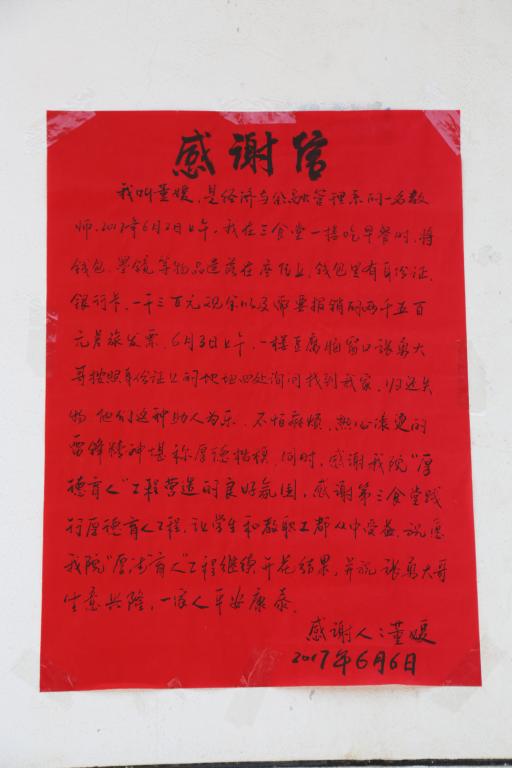 感谢信
我叫董媛，是经济与金融管理系的一名教
师，2017年6月2日上午，我在三食堂一楼吃早餐时，将
钱包、墨镜等物品遗落在座位上，钱包里有身份证、
银行卡、一千三百元现金以及需要报销的两千五百
元差旅发票。6月3日上午，一楼豆腐脑窗口张勇大
哥按照身份证上的地址四处询问找到我家，归还失
物，他们这种助人为乐、不怕麻烦、热心滚烫的
雷锋精神堪称厚德楷模，同时，感谢我院“厚
德育人”工程营造的良好氛围，感谢第三食堂践
行厚德育人工程，让学生和教职工都从中受益，祝愿
我院“厚德育人”工程继续开花结果，并祝张勇大哥
生意兴隆，一家人平安康泰。
感谢人：董媛
2017年6月6日